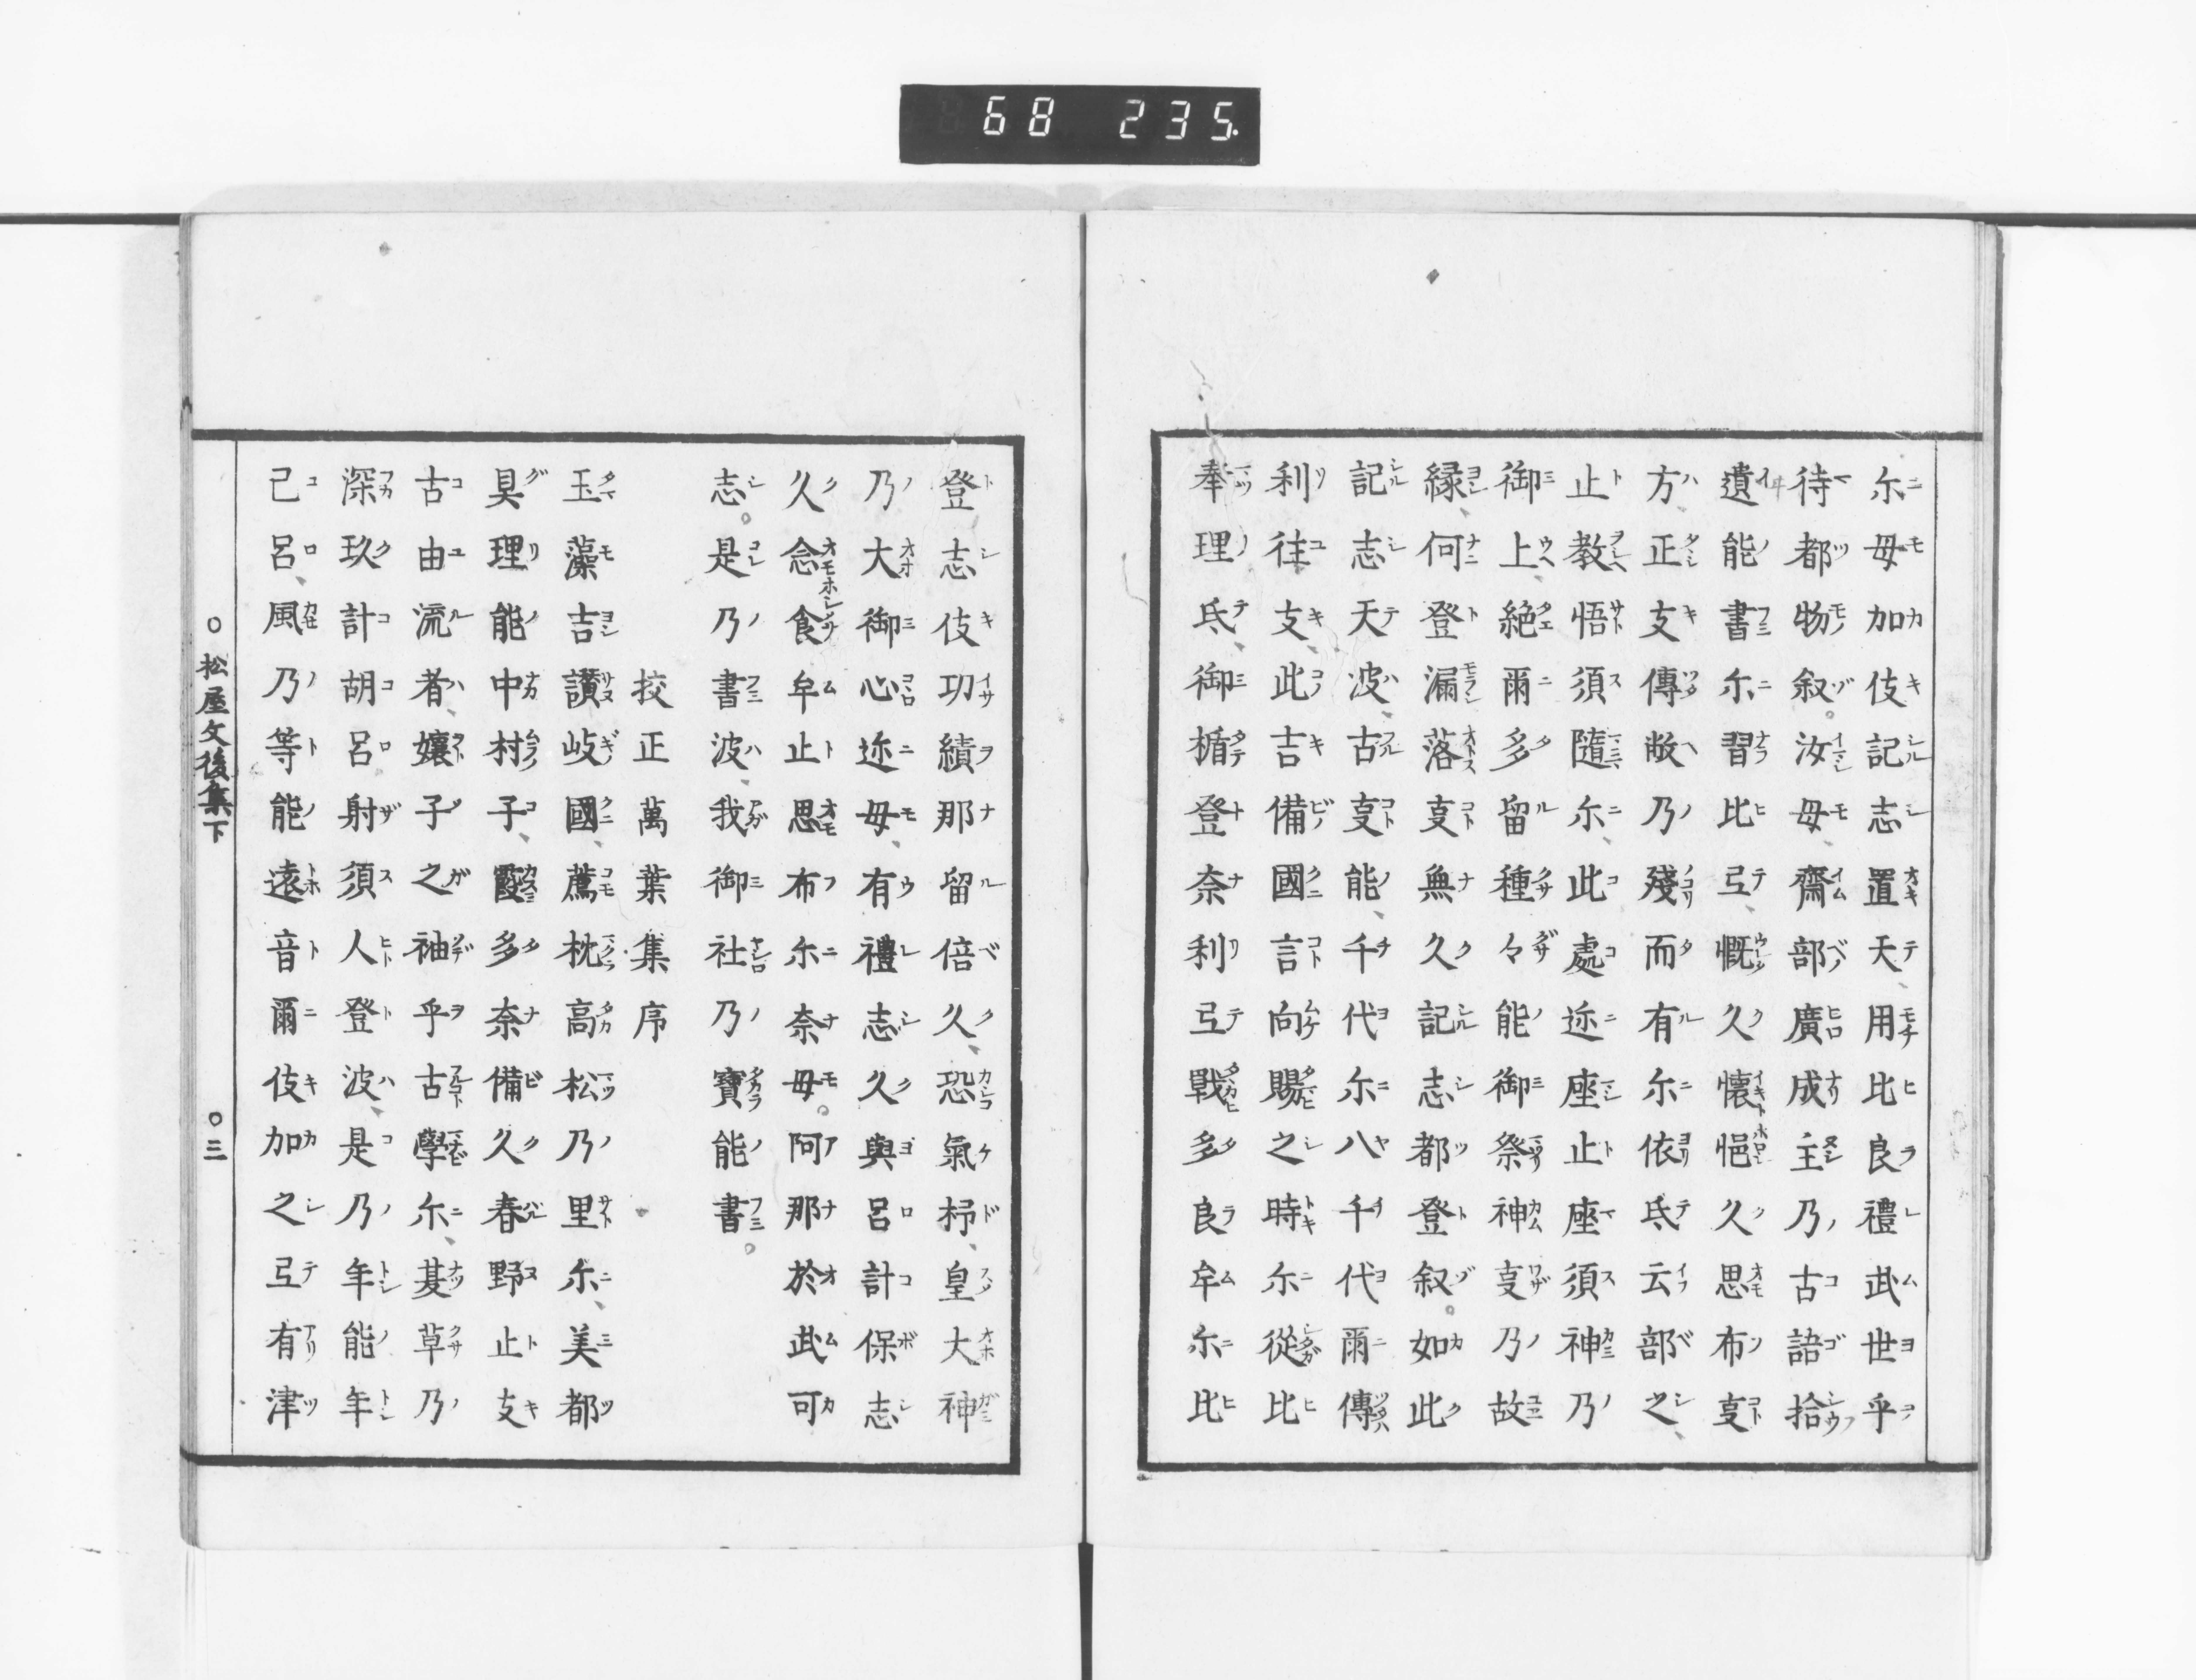 68 235.
尓毋加伎記志置天、用比良禮武世乎
待都物叙。汝毋齋部廣成主乃古語拾
遺能書尓習比弖、慨久懐悒久思布㕝
方、正支傳敝乃殘而有尓依氐云部之、
止教悟須隨尓、此處迩座止座須神乃
御上、絶爾多留種々能御祭神㕝乃故
縁、何登漏落㕝無久記志都登叙。如此
記志天波、古㕝能、千代尓八千代爾傳
利往支、此吉備國言向賜之時尓從比
奉理氐、御楯登奈利弖戰多良牟尓比
登志伎功績那留倍久、恐氣杼、皇大神
乃大御心迩毋、有禮志久與呂計保志
久念食牟止思布尓奈毋。阿那於武可
志。是乃書波、我御社乃寶能書。
挍正萬葉集序
玉藻吉讃岐國、薦枕高松乃里尓、美都
具理能中村子、霞多奈備久春野止支
古由流者、孃子之袖乎古學尓、茤草乃
深玖計胡呂射須人登波、是乃年能年
己呂、風乃等能遠音爾伎加之弖有津
○松屋文後集下 ○三